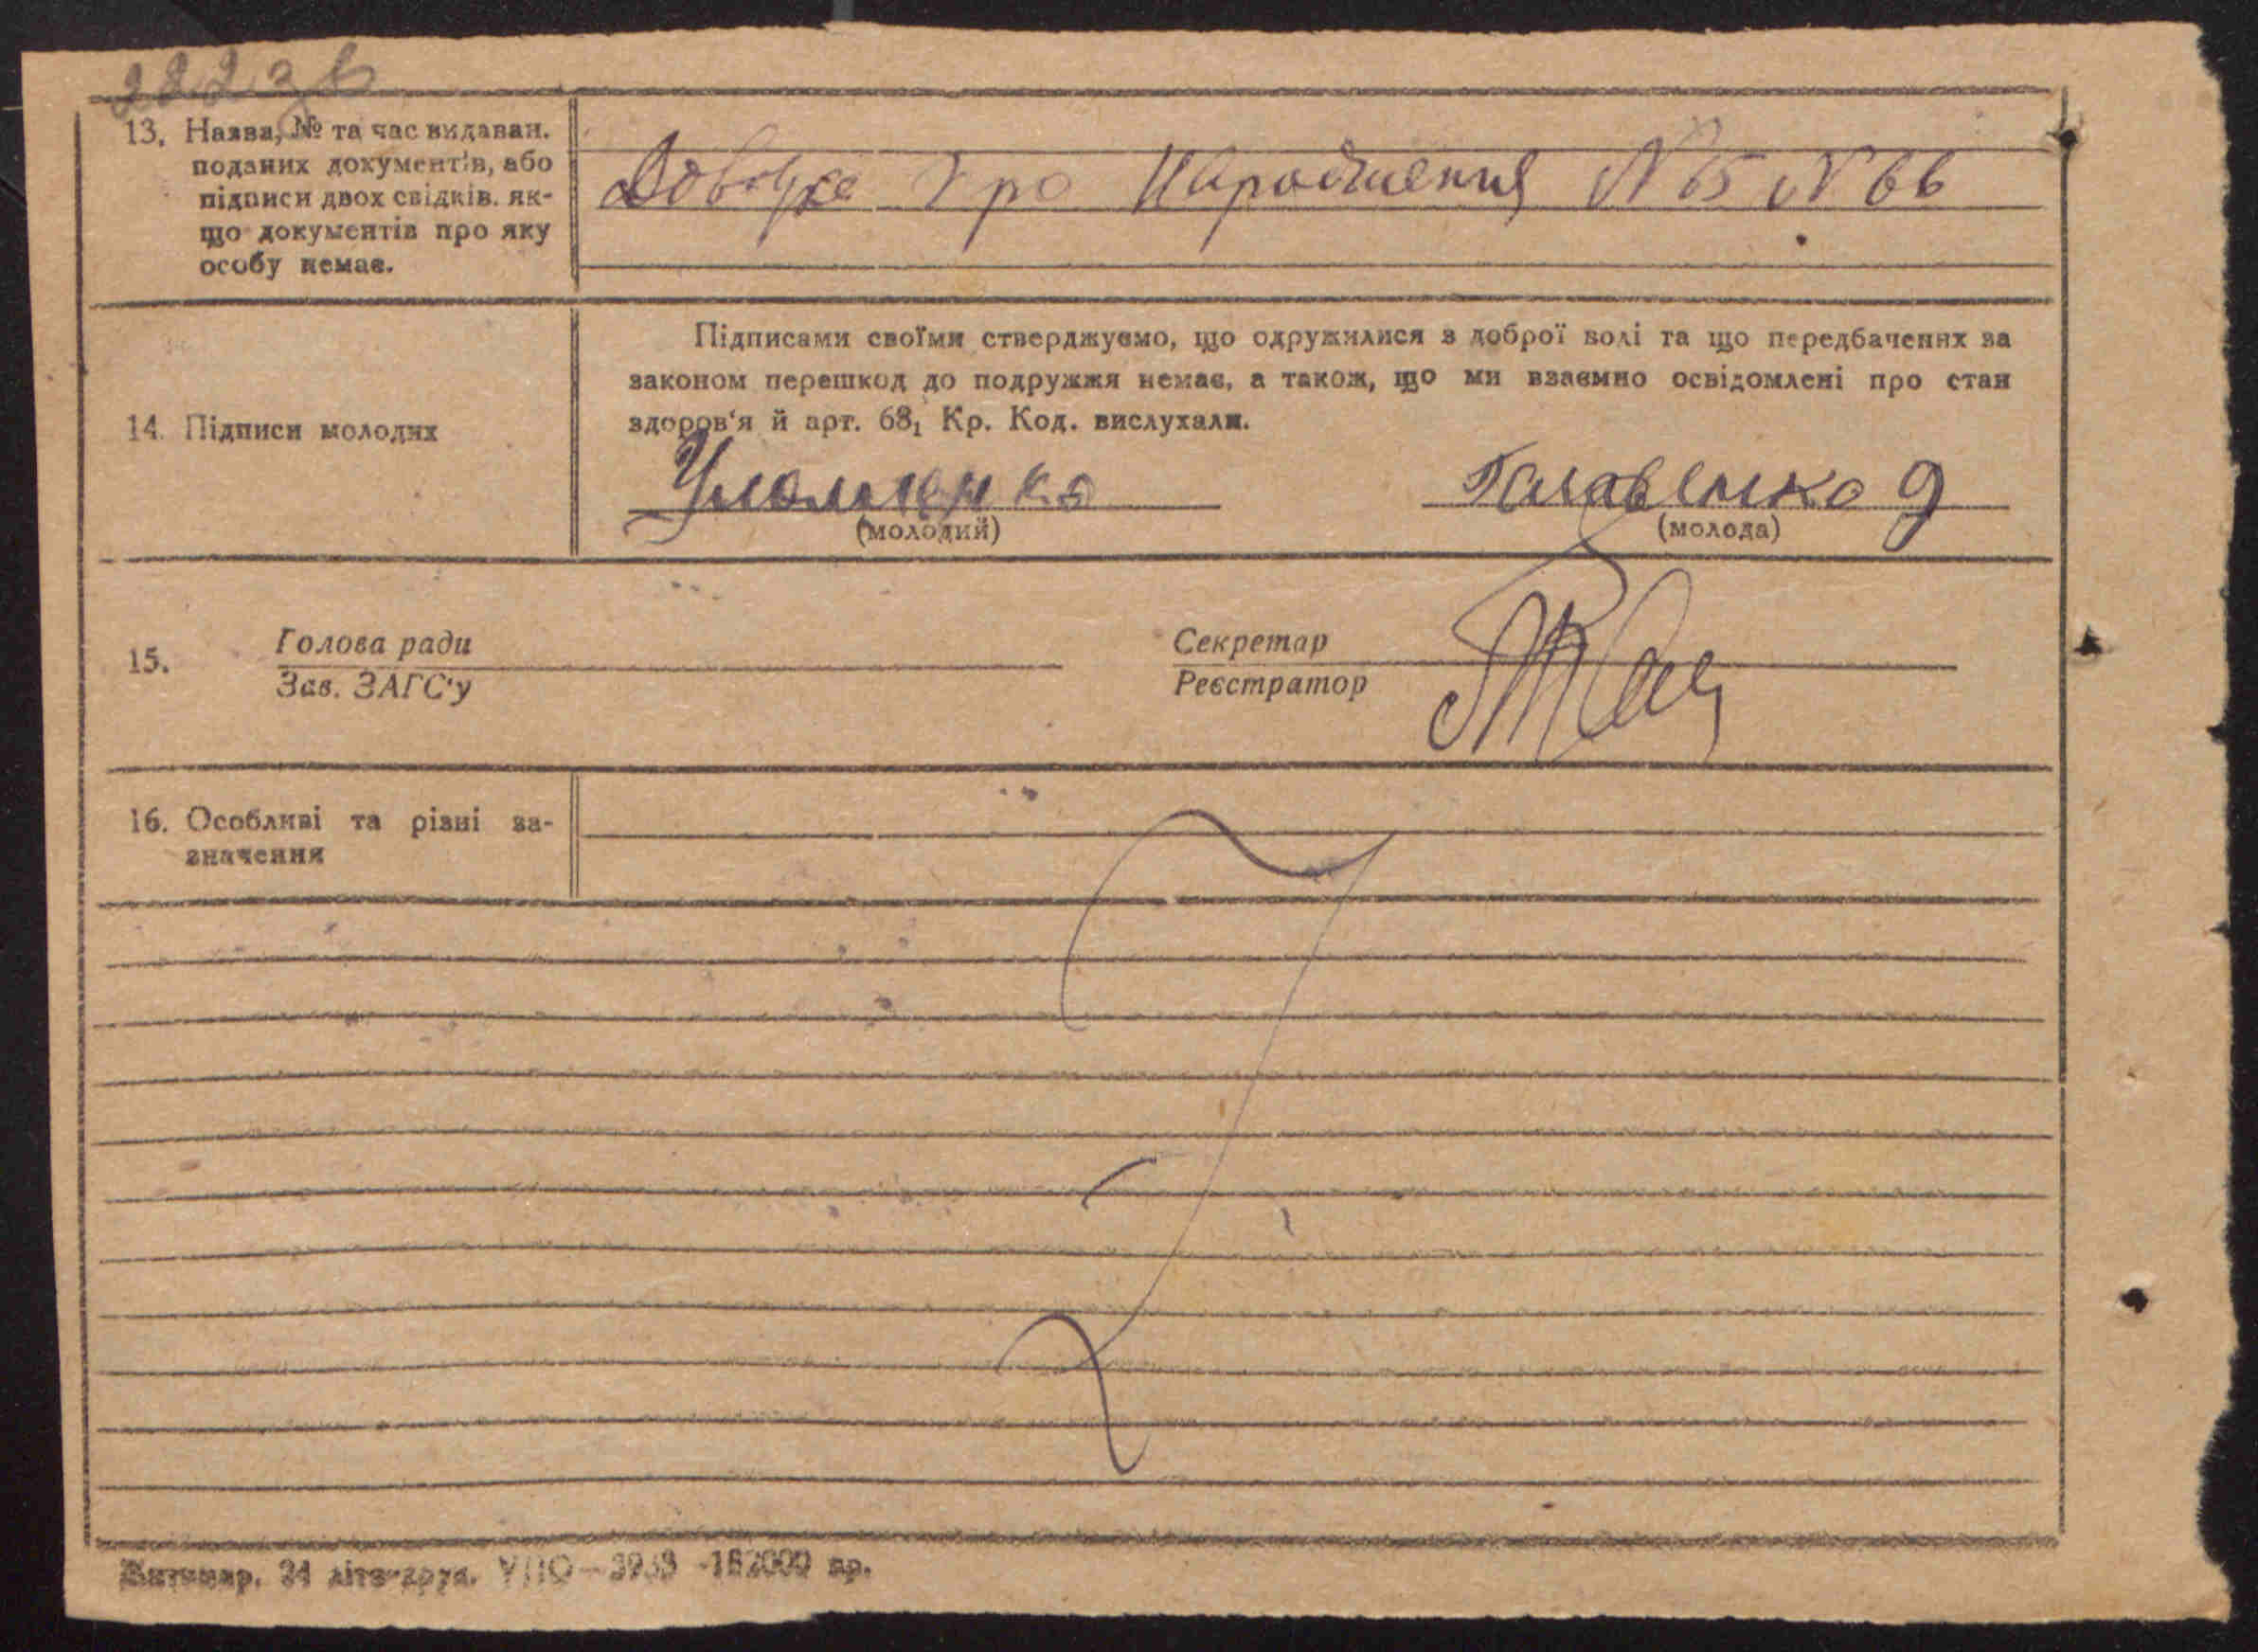 13. Назва, № та час видаван.
поданих документів, або
підписи двох свідків, як-
що документів про яку
особу немає.
Довідка про Народження N 65 N 66
14. Підписи молодих
Підписами своїми стверджуємо, що одружилися з доброї волі та що передбачених за
законом перешкод до подружжя немає, а також, що ми взаємно освідомлені про стан
здоров'я й арт. 68₁ Кр. Код. вислухали.
(молодий)
(молода)
15.
Голова ради
Зав. ЗАГС'у
Секретар
Реєстратор
16. Особливі та різні за-
значення
Житомир. 24 літо-друк. УПО—3933 -182000 пр.